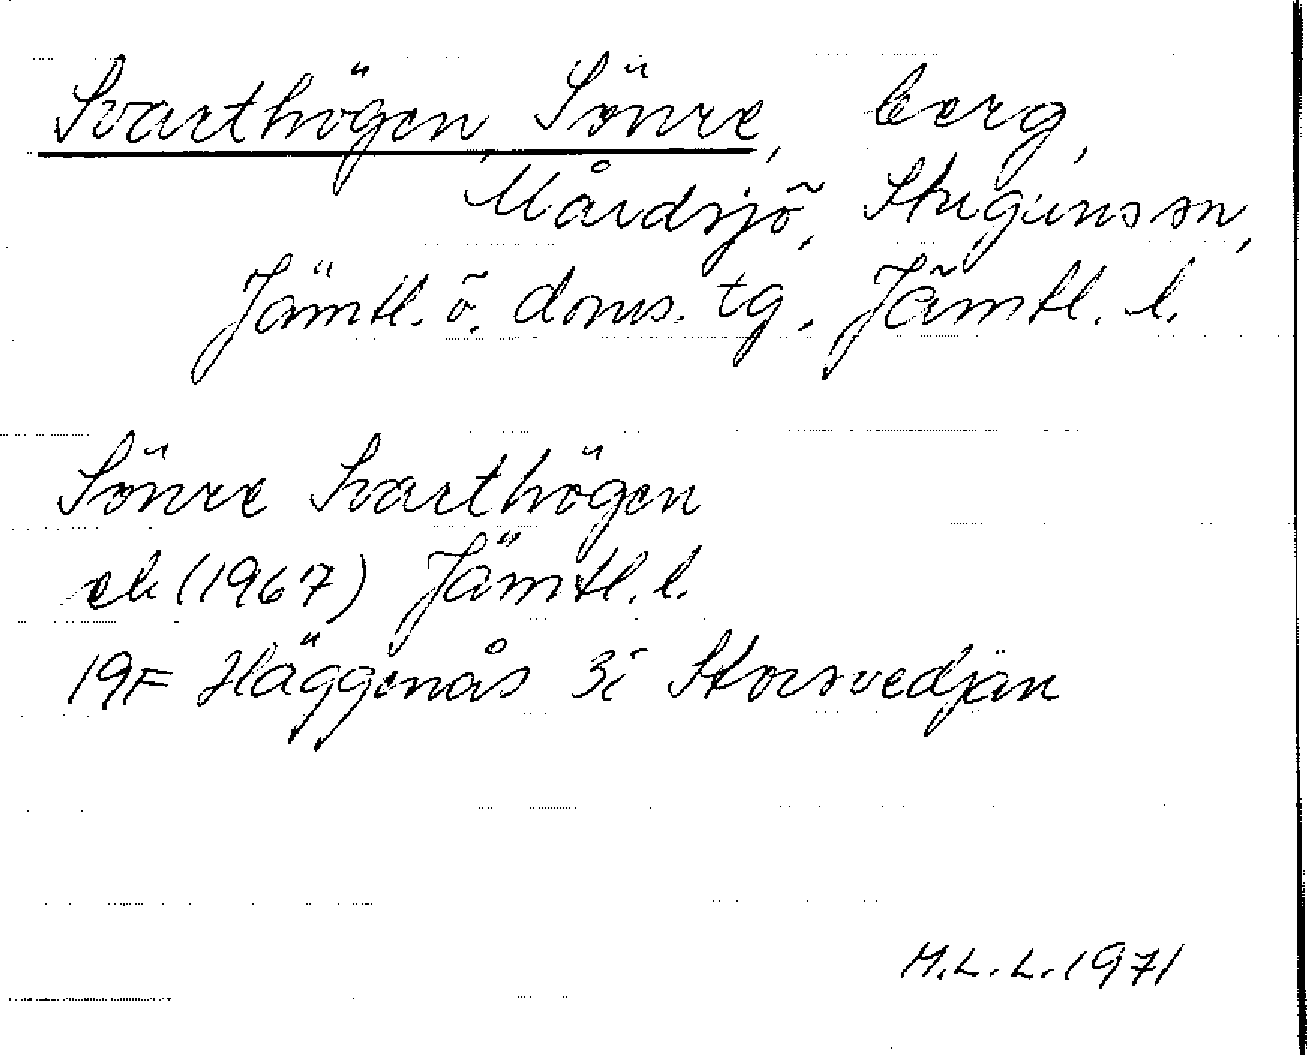 Svarthögen, Sönre, berg,
Mårdsjö, Stuguns sn,
Jämtl. ö. doms. tg. Jämtl. l.
Sönre Svarthögen
ek (1967) Jämtl. l.
19F Häggenås 3i Storsvedjan
M.L.L. 1971